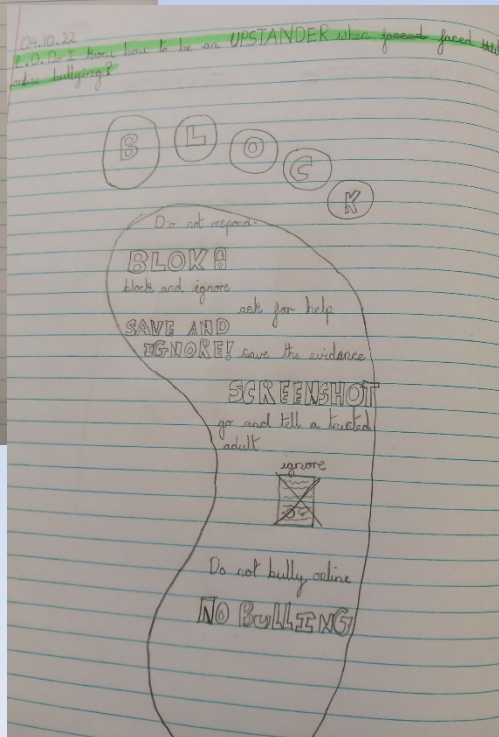 04.10.22
L.O. Do I know how to be an UPSTANDER when faced
online bullying?
B L O C K
Do not respond.
BLOKA
block and ignore
ask for help
SAVE AND
IGNORE! save the evidence
SCREENSHOT
go and tell a trusted
adult
ignore
Do not bully online
NO BULLING